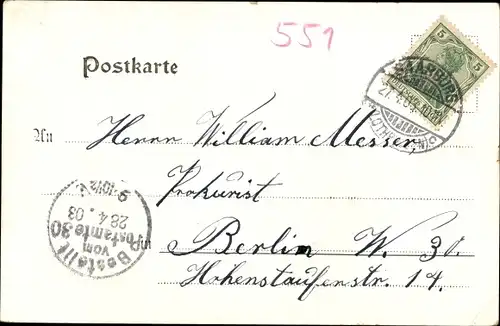 551
Postkarte
5 5
SAARBURG
27.4.03
(LOTHRINGEN)
An Herrn William Messer,
Prokurist
in Berlin W. 30.
Hohenstaufenstr. 14.
Bestellt
vom
Postamte 30
28.4.03
9-10½V